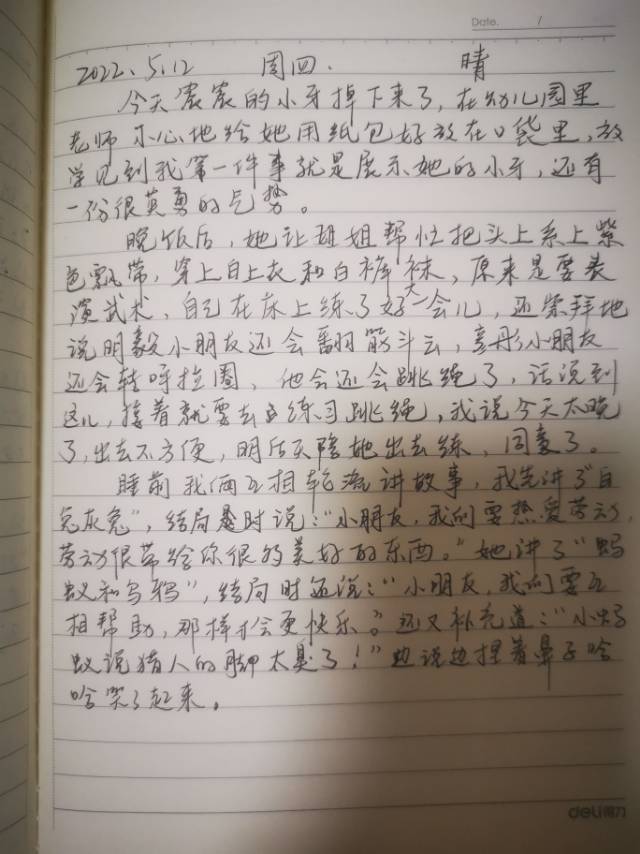 Date. /
2022.5.12 周四. 晴
今天宸宸的小牙掉下来了,在幼儿园里
老师小心地给她用纸包好放在口袋里,放
学见到我第一件事就是展示她的小牙,还有
一份很英勇的气势。
晚饭后,她让姐姐帮忙把头上系上紫
色飘带,穿上白上衣和白裤袜,原来是要表
演武术,自己在床上练了好大一会儿,还崇拜地
说明毅小朋友还会翻筋斗云,彦彤小朋友
还会转呼拉圈,他会还会跳绳了,话说到
这儿,接着就要去练习跳绳,我说今天太晚
了,出去不方便,明后天陪她出去练,同意了。
睡前我俩互相轮流讲故事,我先讲了"白
兔灰兔",结局是时说:"小朋友,我们要热爱劳动,
劳动很带给你很的美好的东西。"她讲了"蚂
蚁和乌鸦",结局时还说:"小朋友,我们要互
相帮助,那样才会更快乐。还又补充道:"小蚂
蚁说猎人的脚太臭了!"边说边捏着鼻子哈
哈笑了起来。
deli得力